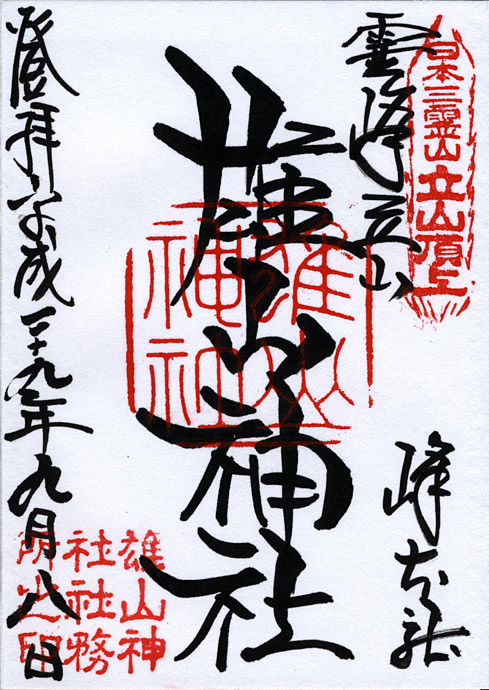 日本三靈山立山頂上
靈峰立山
峰本社
雄山神社
雄山
神社
登拝平成二十九年九月八日
雄山神
社社務
所之印